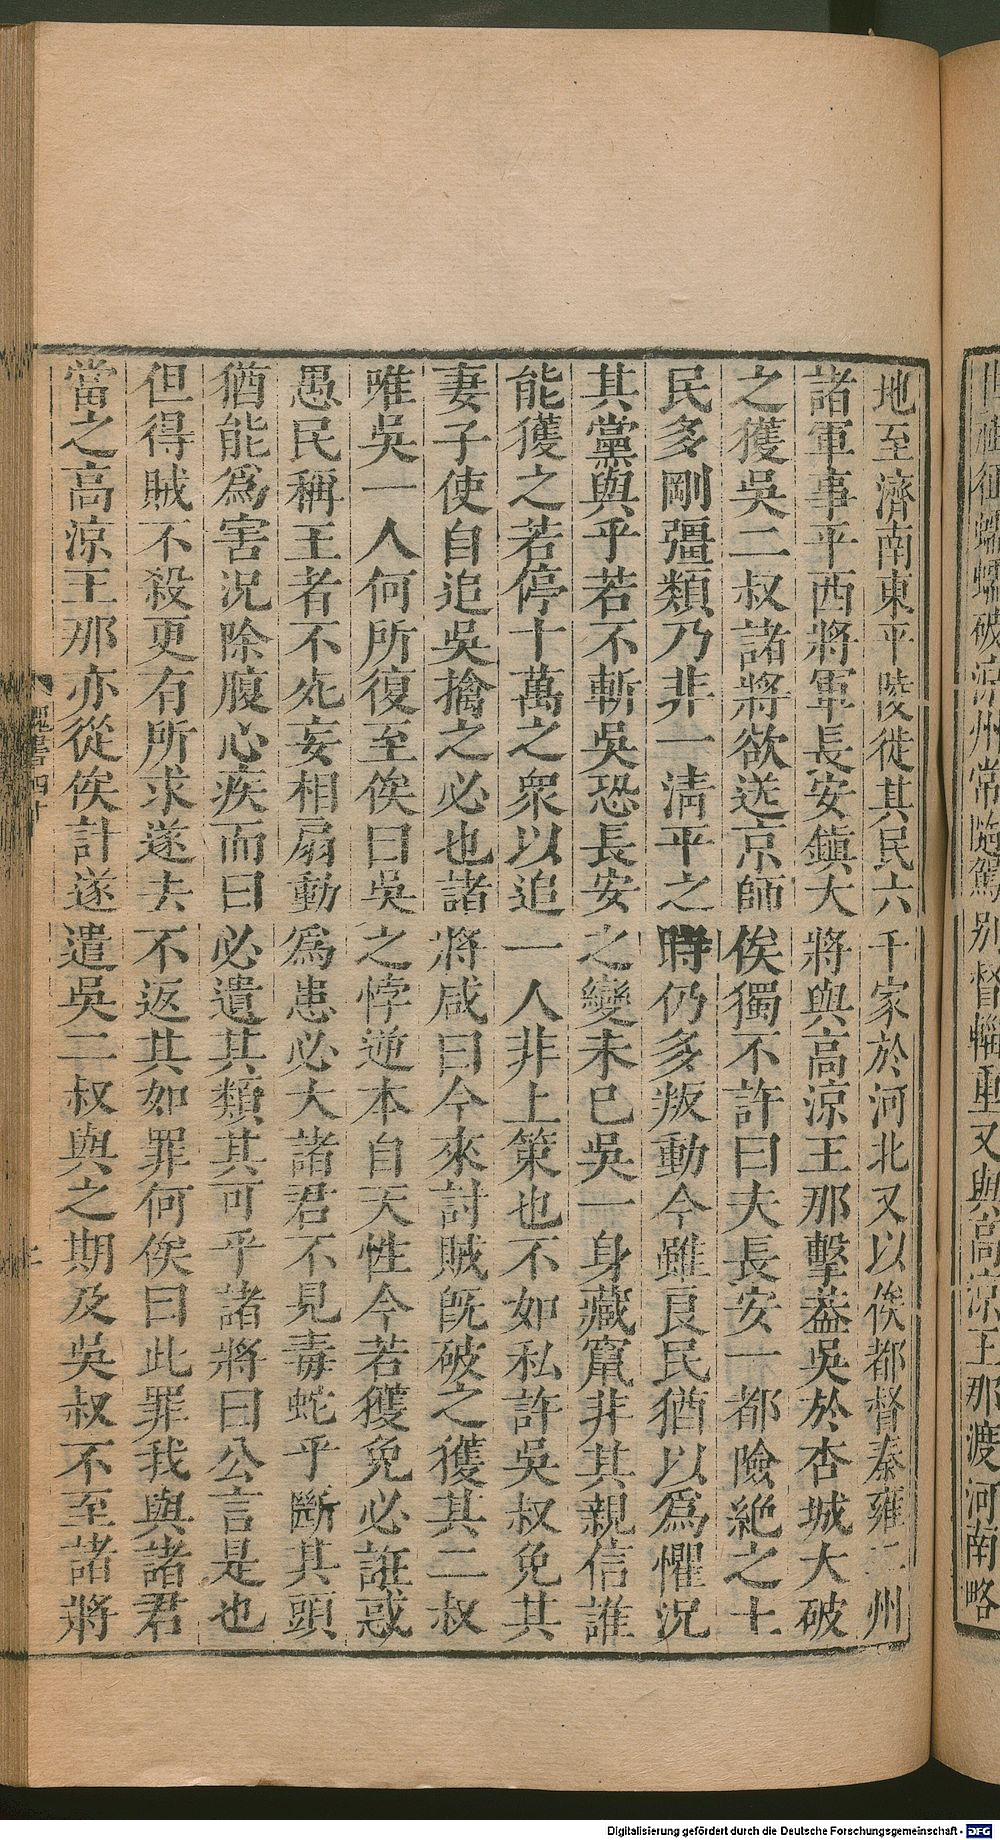 世祖征蠕蠕破涼州常隨駕別督輜重又與高涼王那渡河南略
地至濟南東平陵徙其民六千家於河北又以俟都督秦雍二州
諸軍事平西將軍長安鎮大將與高涼王那擊蓋吳於杏城大破
之獲吳二叔諸將欲送京師俟獨不許曰夫長安一都險絕之土
民多剛彊類乃非一清平之時仍多叛動今雖良民猶以為懼況
其黨與乎若不斬吳恐長安之變未已吳一身藏竄非其親信誰
能獲之若停十萬之眾以追一人非上策也不如私許吳叔免其
妻子使自追吳擒之必也諸將咸曰今來討賊既破之獲其二叔
唯吳一人何所復至俟曰吳之悖逆本自天性今若獲免必誑惑
愚民稱王者不死妄相扇動為患必大諸君不見毒蛇乎斷其頭
猶能為害況除腹心疾而曰必遺其類其可乎諸將曰公言是也
但得賊不殺更有所求遂去不返其如罪何俟曰此罪我與諸君
當之高涼王那亦從俟計遂遣吳二叔與之期及吳叔不至諸將
魏書四十
Digitalisierung gefördert durch die Deutsche Forschungsgemeinschaft - DFG